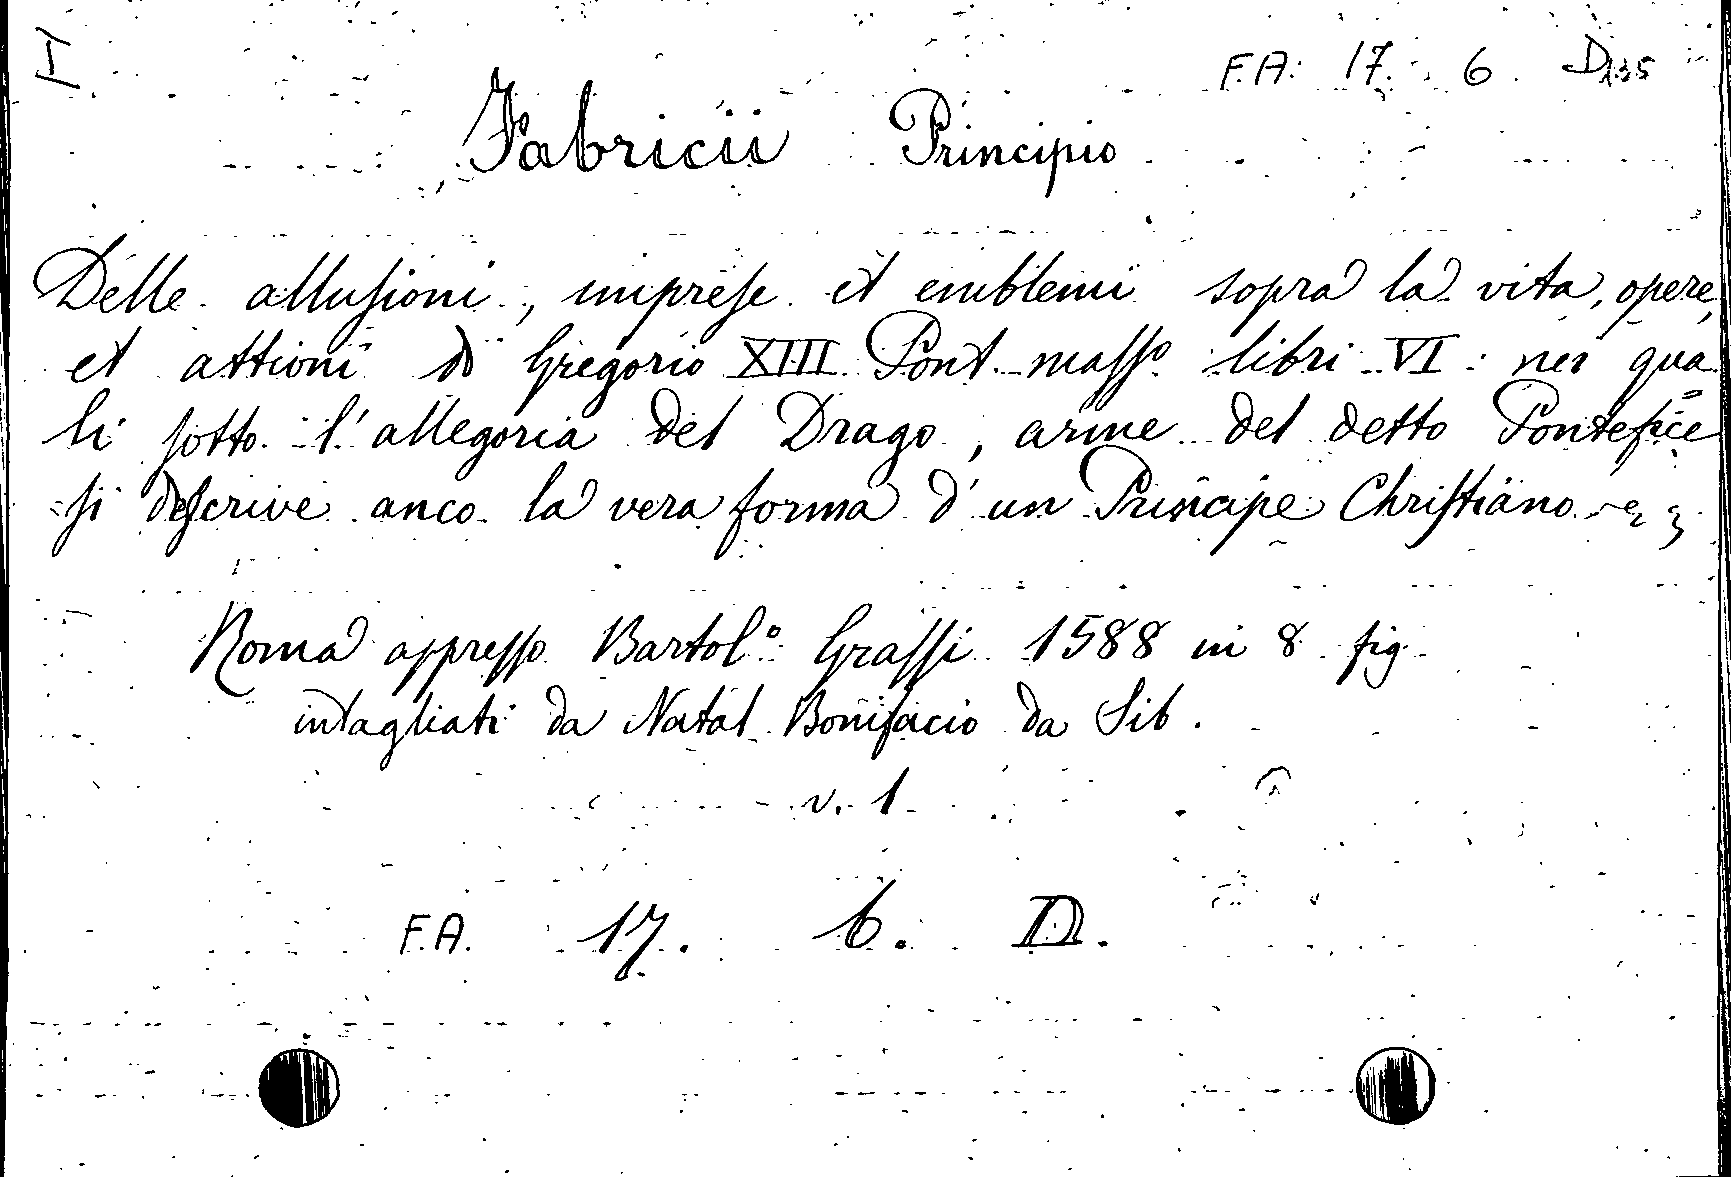 F.A. 17. 6. D 135
Fabricii Principio
Delle allusioni, imprese et emblemi sopra la vita, opere,
et attioni di Gregorio XIII Pont. masso libri VI: nei qua
li sotto l'allegoria del Drago, arme del detto Pontefice
si descrive anco la vera forma d'un Principe Christiano
Roma appresso Bartol.o Grassi 1588 in 8 fig.
intagliati da Natal Bonifacio da Sib.
v. 1
F.A. 17. 6. D.